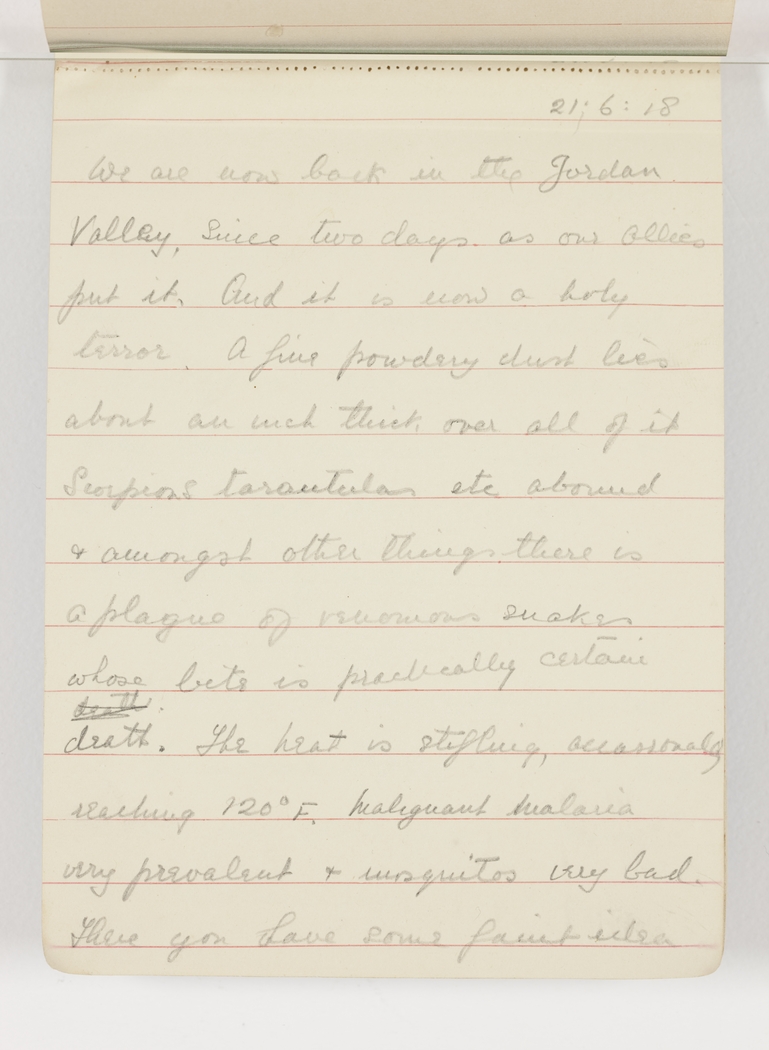 21:6:18
We are now back in the Jordan
Valley, since two days. as our allies
put it. And it is now a holy
terror. A fine powdery dust lies
about an inch thick over all of it
Scorpions tarantulas etc abound
& amongst other things there is
a plague of venomous snakes
whose bite is practically certain
death.
death. The heat is stifling, occassionaly
reaching 120° F. Malignant Malaria
very prevalent & mosquitos very bad.
There you have some faint idea